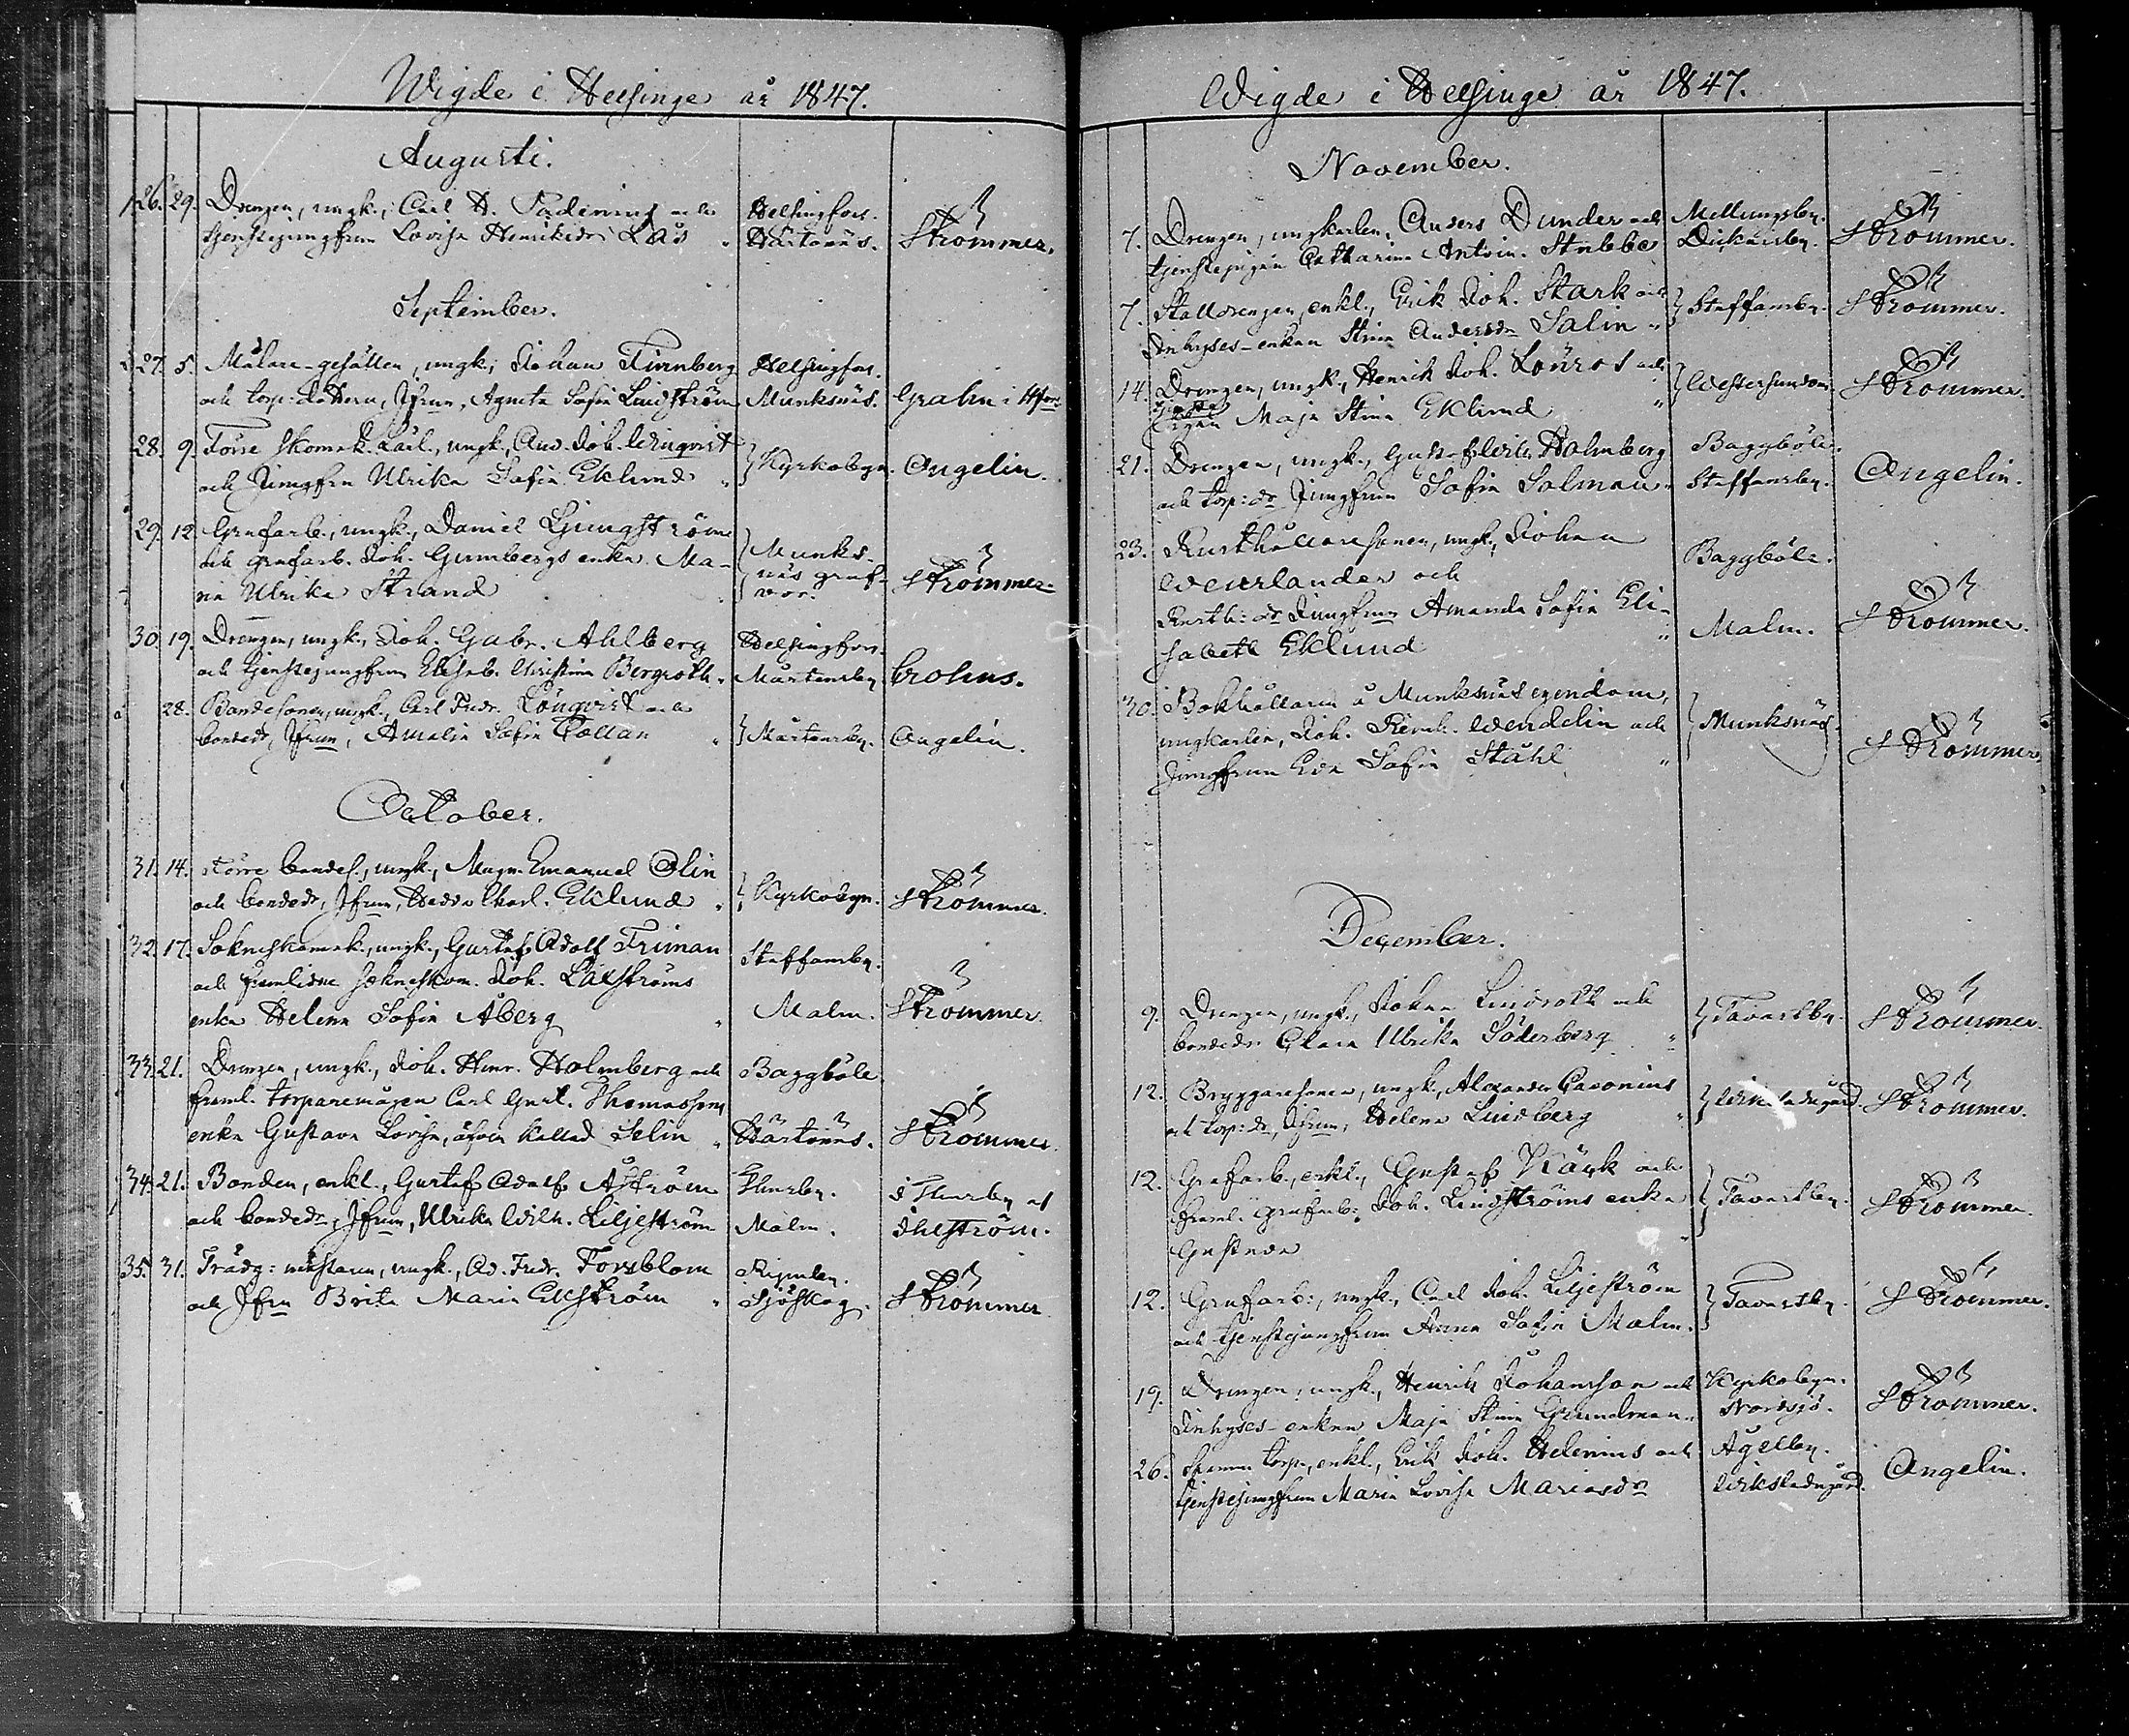 Wigde i Helsinge år 1847.
Augusti.
126. 29. Drengen, ungk., Carl H. Fadenius och Helsingfors.
tjenstejungfrun Lovisa Henriksdr Lås " Hårtonäs. Strömmer.
September.
27. 5. Målare-gesällen, ungk., Johan Firnberg Helsingfors.
och torp:dottern, Jfrun, Agneta Sofia Lindström Munksnäs. Grahn i Hfors
28. 9. Förre skomak. ungk., And. Joh. Winqvist
och Jungfrun Ulrika Sofia Eklund " Kyrkobyn. Angelin.
29. 12. Grufarb., ungk., Daniel Ljungström
och grufarb. Joh. Gumbergs enka Ma- Munks-
ria Ulrika Strand näs gruf- Strömmer.
30. 19. Drengen, ungk., Joh. Gabr. Ahlberg Helsingfors.
och tjenstejungfrun Elisab. Christina Bergroth " Mårtensby. Crohns.
28. Bondesonen, ungk., Carl Fredr. Lönqvist och
bondedr, Jfrun, Amalia Sofia Collan " Mårtensby. Angelin.
October.
31. 14. Förre bondes., ungk., Magn. Emanuel Olin
och bondedr, Jfrun, Hedda Charl. Eklund " Kyrkobyn. Strömmer.
32. 17. Sokneskomak., ungk., Gustaf Adolf Friman Staffansby.
och framlidne sokneskom. Joh. Laxströms
enka Helena Sofia Åberg " Malm. Strömmer.
33. 21. Drengen, ungk., Joh. Henr. Holmberg och Baggböle
framl. torparemågen Carl Gust. Thomassons
enka Gustava Lovisa, äfven kallad Selin " Hårtonäs. Strömmer.
34. 21. Bonden, enkl., Gustaf Adolf Åström Thurby. i Thurby af
och bondedr, Jfrun, Ulrika Wilh. Liljeström Malm. Ihlström.
35. 31. Trädg:mästaren, ungk., Ad. Fredr. Forsblom
och Jfrn Brita Maria Ekström " Sjöskog. Strömmer
Wigde i Helsinge år 1847.
November.
7. Drengen, ungkarlen, Anders Dunder och Mellungsby.
tjenstepigan Catharina Antoin. Stubbe Dickursby. Strömmer.
7. Stalldrengen, enkl., Erik Joh. Stark och
Inhyses-enkan Stina Andersdr Salin " Staffansby. Strömmer.
14. Drengen, ungk., Henrik Joh. Lönros och
pigan Maja Stina Eklund " Westersundom Strömmer.
21. Drengen, ungk., Gustaf Wilh. Holmberg Baggböle.
och torp:dr Jungfrun Sofia Salman " Staffansby. Angelin.
23. Rusthållaresonen, ungk., Johan Baggböle.
Weurlander och
Rusth:dr Jungfrun Amanda Sofia Eli-
sabeth Eklund " Malm. Strömmer.
30. Bokhållaren å Munksnäs egendom,
ungkarlen, Joh. Reinh. Wendelin och Munksnäs.
Jungfrun Eva Sofia Ståhl " Strömmer.
December.
9. Drengen, ungk., Johan Lindroth och
bondedr Clara Ulrika Söderberg " Tavastby. Strömmer.
12. Bryggaresonen, ungk., Alexander Caronius
och torp:dr, Jfrun, Helena Lindberg " Wiksladugård. Strömmer.
12. Grufarb., enkl., Gustaf Käck och
framl. grufarb: Joh. Lindströms enka Tavastby. Strömmer.
Gustava "
12. Grufarb:, ungk., Carl Joh. Liljeström
och tjenstejungfrun Anna Sofia Malm. Tavastby. Strömmer.
19. Drengen, ungk., Henrik Johansson och Kyrkobyn.
Inhyses-enkan Maja Stina Grundman " Nordsjö. Strömmer.
26. torp., enkl., Erik Joh. Helenius och
tjenstejungfrun Maria Lovisa Mariasdr Wiksladugård. Angelin.